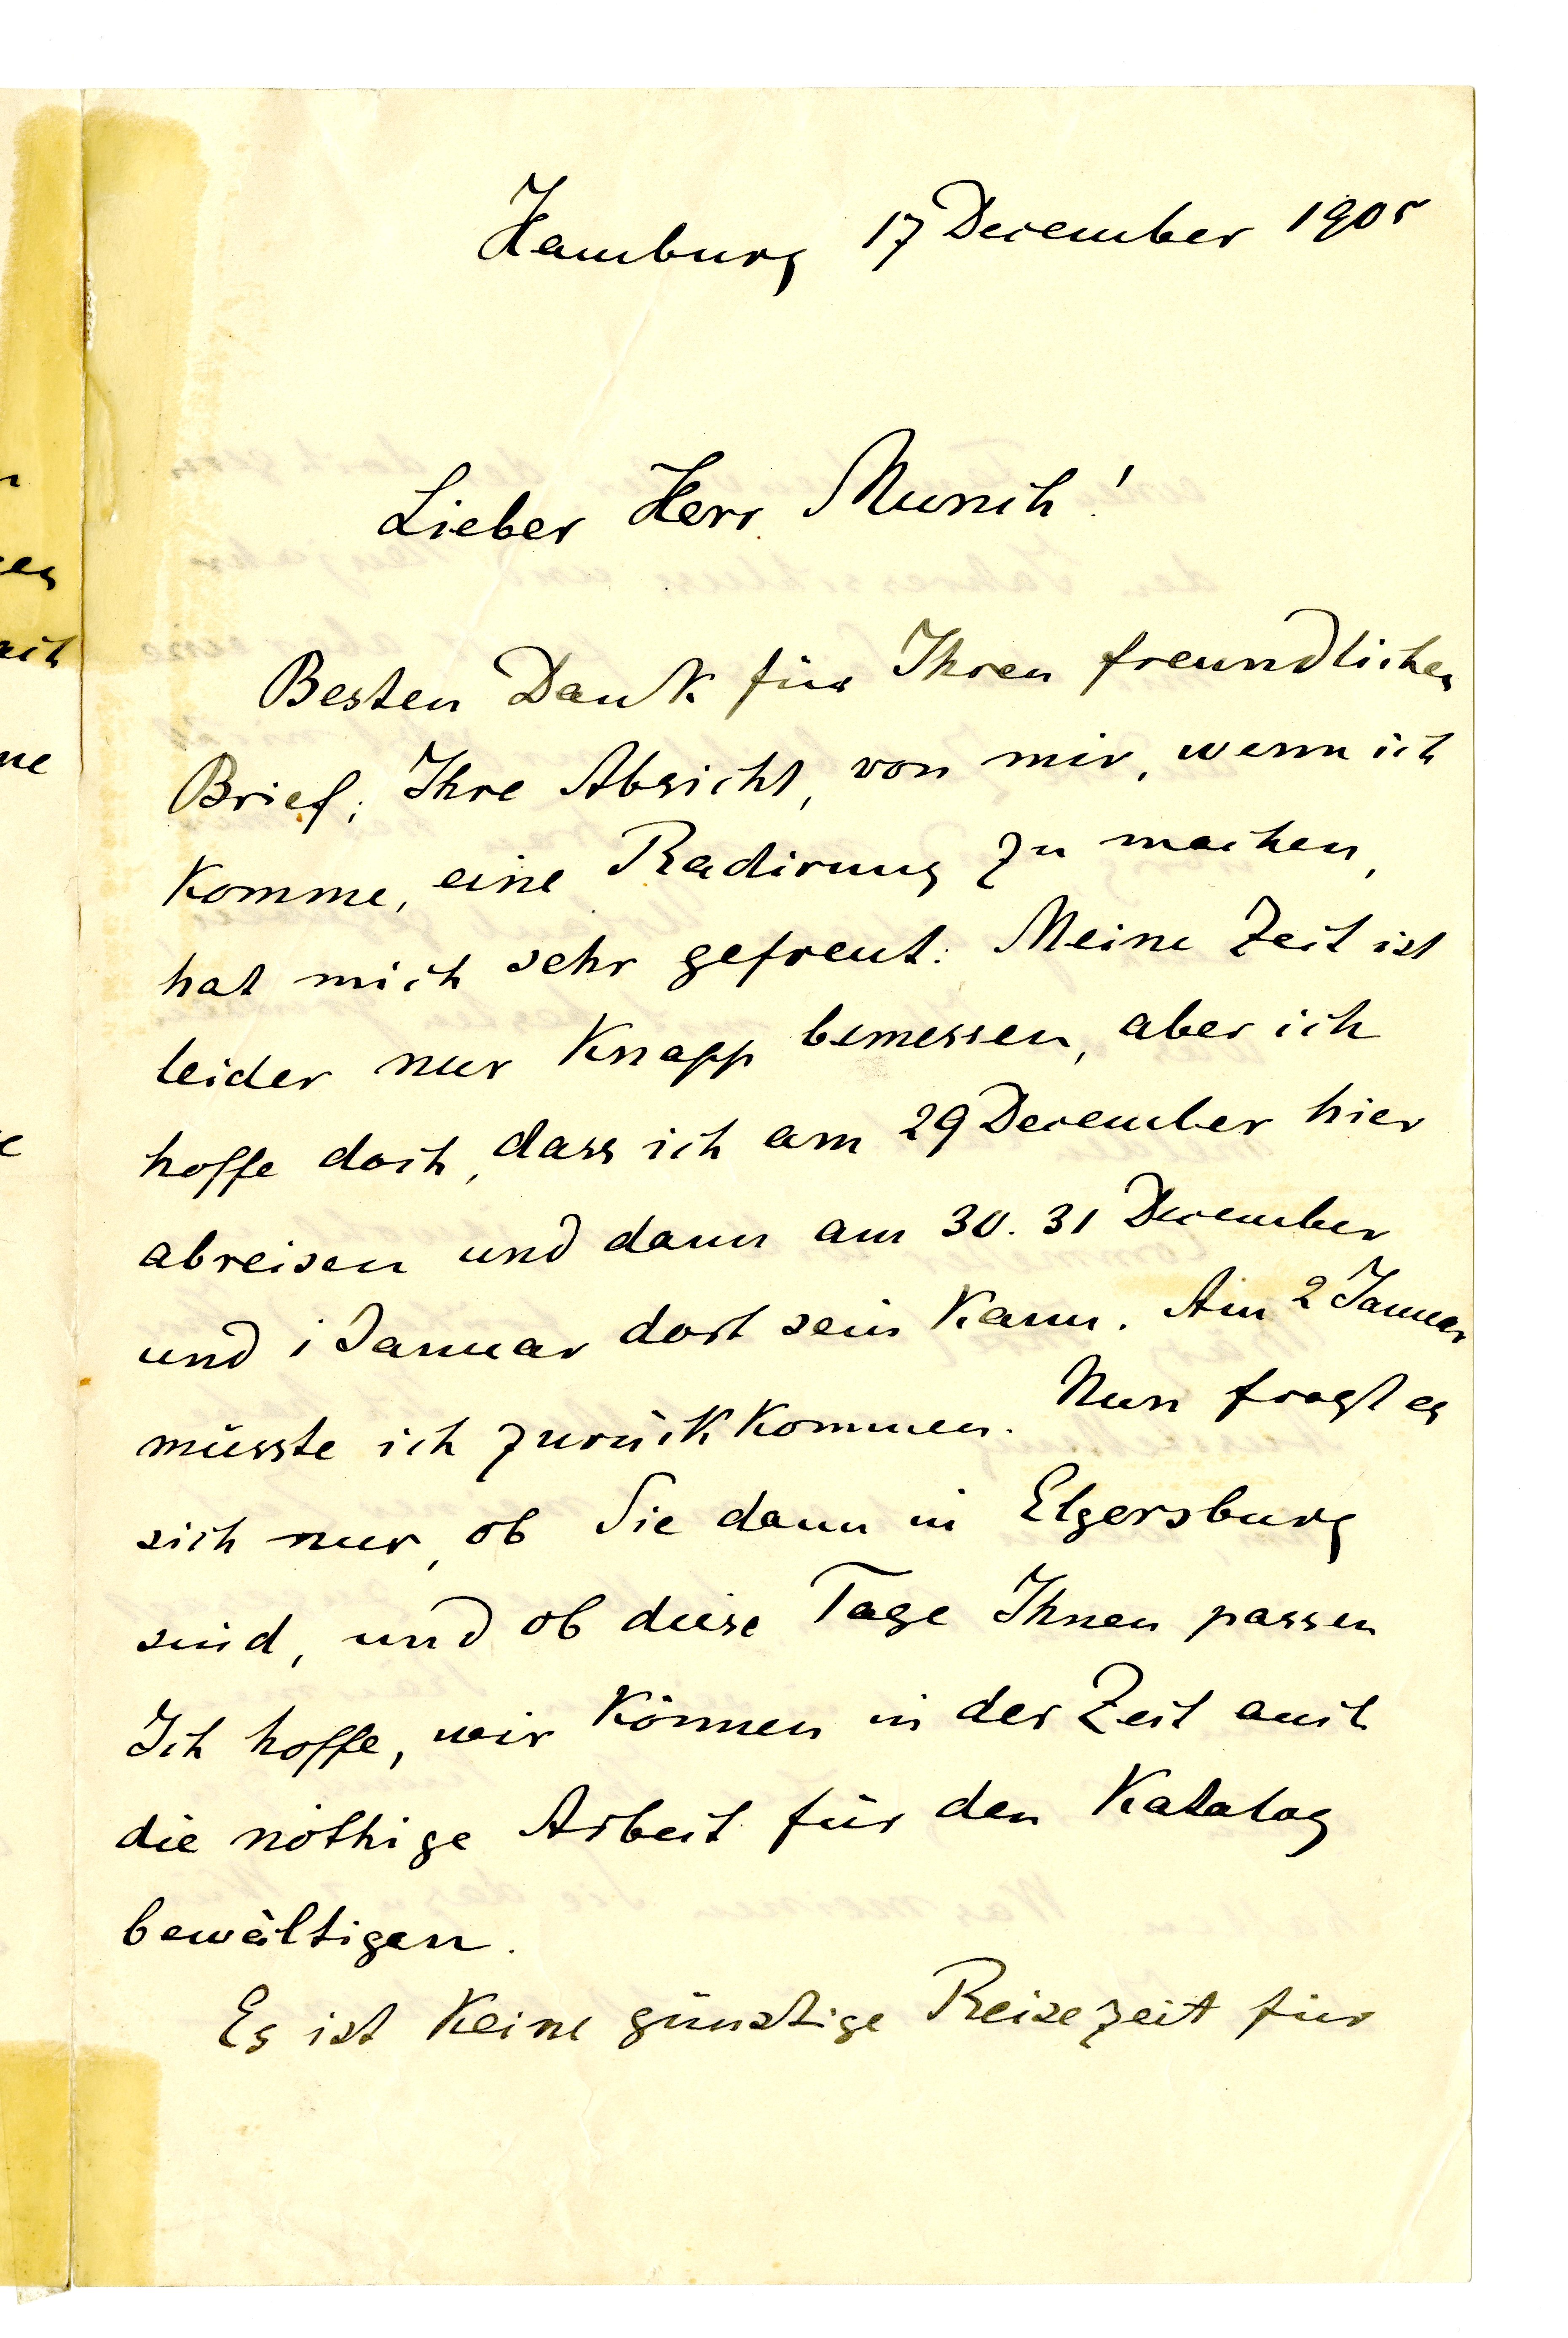 Hamburg 17 December 1905
Lieber Herr Munch!
Besten Dank für Ihren freundlichen
Brief; Ihre Absicht, von mir, wenn ich
komme, eine Radirung zu machen,
hat mich sehr gefreut. Meine Zeit ist
leider nur knapp bemessen, aber ich
hoffe doch, dass ich am 29 December hier
abreisen und dann am 30. 31 December
und 1 Januar dort sein kann. Am 2 Januar
müsste ich zurückkommen. Nun fragt es
sich nur, ob Sie dann in Elgersburg
sind, und ob diese Tage Ihnen passen
Ich hoffe, wir können in der Zeit auch
die nöthige Arbeit für den Katalog
bewältigen.
Es ist keine günstige Reisezeit für